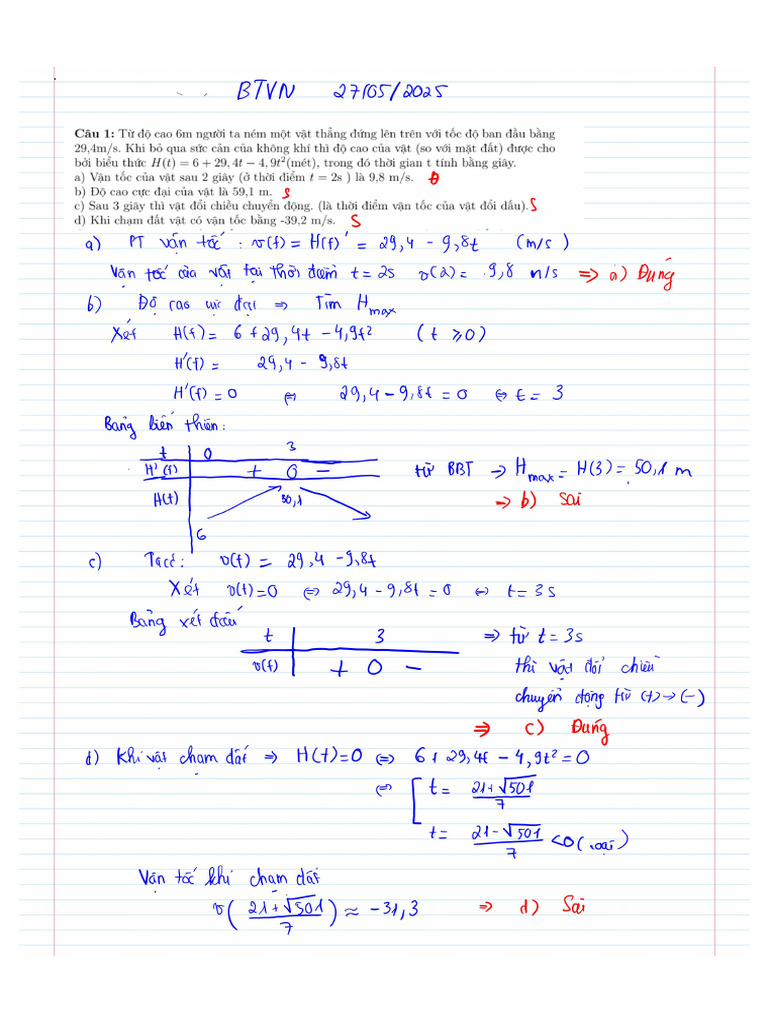 BTVN 27/05/2025
Câu 1: Từ độ cao 6m người ta ném một vật thẳng đứng lên trên với tốc độ ban đầu bằng
29,4m/s. Khi bỏ qua sức cản của không khí thì độ cao của vật (so với mặt đất) được cho
bởi biểu thức H(t) = 6 + 29, 4t − 4, 9t²(mét), trong đó thời gian t tính bằng giây.
a) Vận tốc của vật sau 2 giây (ở thời điểm t = 2s ) là 9,8 m/s. Đ
b) Độ cao cực đại của vật là 59,1 m. S
c) Sau 3 giây thì vật đổi chiều chuyển động. (là thời điểm vận tốc của vật đổi dấu). S
d) Khi chạm đất vật có vận tốc bằng -39,2 m/s. S
a) PT vận tốc : v(t) = H(t)' = 29,4 - 9,8t (m/s)
Vận tốc của vật tại thời điểm t = 2s v(2) = 9,8 m/s => a) Đúng
b) Độ cao cực đại => Tìm H max
Xét H(t) = 6 + 29,4t - 4,9t² (t ≥ 0)
H'(t) = 29,4 - 9,8t
H'(t) = 0 <=> 29,4 - 9,8t = 0 <=> t = 3
Bảng biến thiên:
t 0 3
H'(t) + 0 -
H(t) 50,1
6
từ BBT → H max = H(3) = 50,1 m
→ b) Sai
c) Ta có: v(t) = 29,4 - 9,8t
Xét v(t) = 0 <=> 29,4 - 9,8t = 0 <=> t = 3s
Bảng xét dấu
t 3
v(t) + 0 -
=> từ t = 3s
thì vật đổi chiều
chuyển động từ (+) → (-)
=> c) Đúng
d) Khi vật chạm đất => H(t) = 0 <=> 6 + 29,4t - 4,9t² = 0
<=> [ t = (21 + √501)/7
t = (21 - √501)/7 < 0 (loại)
Vận tốc khi chạm đất
v((21 + √501)/7) ≈ -31,3 => d) Sai